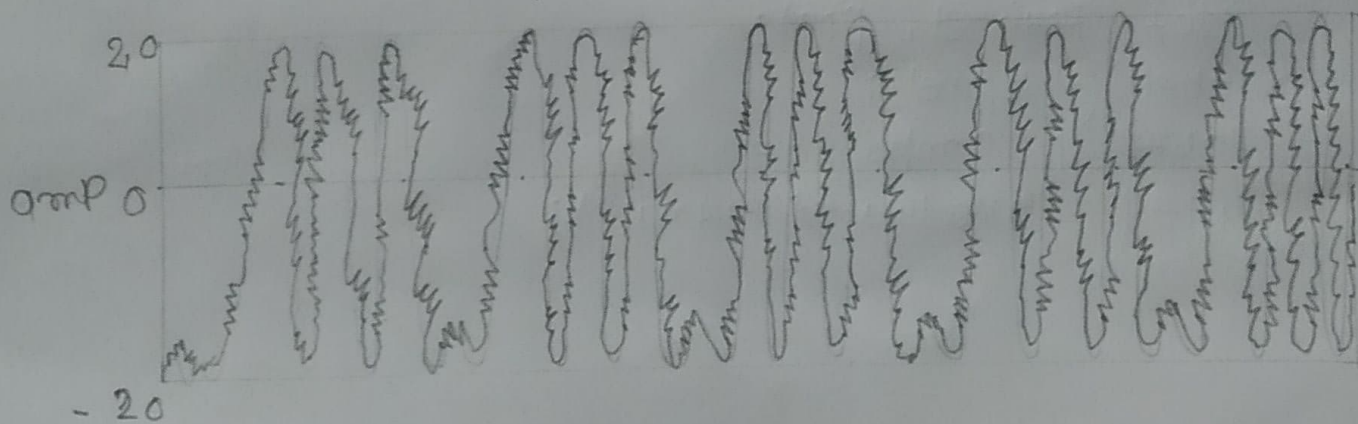 20
amp 0
- 20